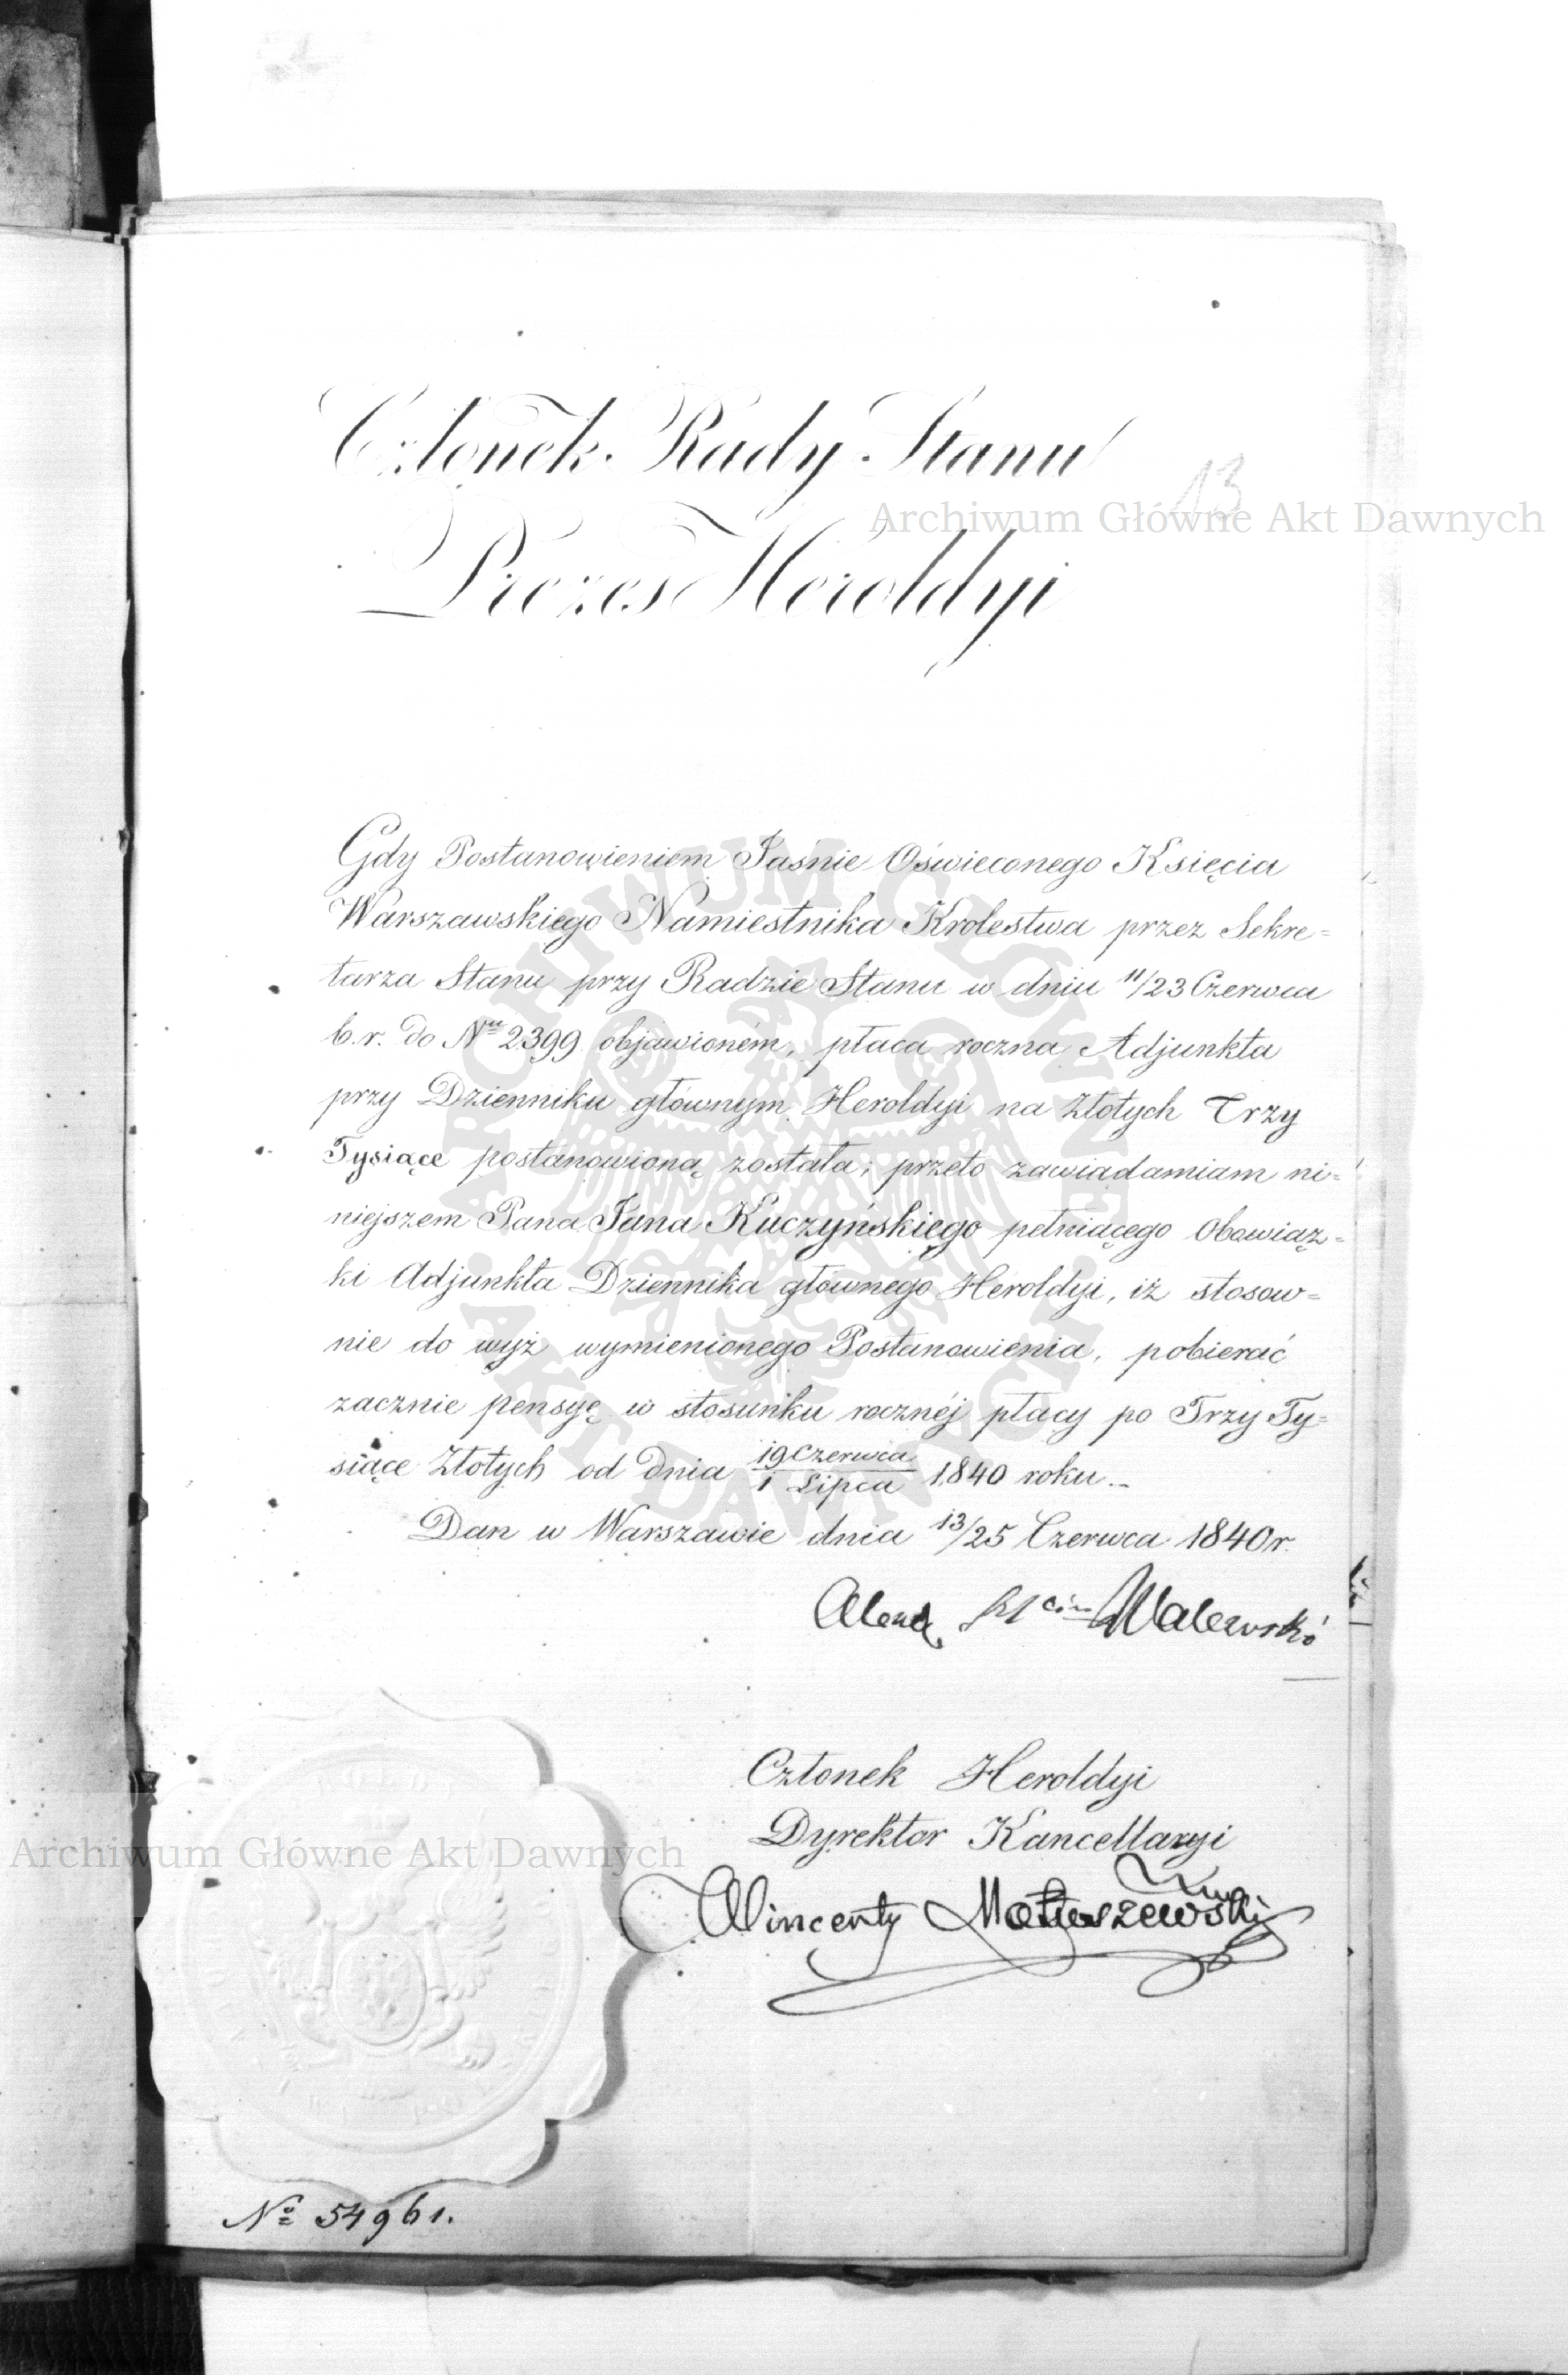 Członek Rady Stanu
13
Archiwum Główne Akt Dawnych
Prezes Heroldyi
Gdy Postanowieniem Jaśnie Oświeconego Księcia
Warszawskiego Namiestnika Krolestwa przez Sekre=
tarza Stanu przy Radzie Stanu w dniu 11/23 Czerwca
b.r. do Nru 2399 objawioném, płaca roczna Adjunkta
przy Dzienniku głównym Heroldyi na Złotych Trzy
Tysiące postanowioną została; przeto zawiadamiam ni=
niejszem Pana Jana Kuczyńskiego pełniącego Obowiąz=
ki Adjunkta Dziennika głównego Heroldyi, iż stosow=
nie do wyż wymienionego Postanowienia, pobierać
zacznie pensyę w stosunku rocznéj płacy po Trzy Ty=
siące Złotych od dnia 19 Czerwca/1 Lipca 1840 roku.-
Dan w Warszawie dnia 13/25 Czerwca 1840 r.
Alexd. Walewski
Członek Heroldyi
Dyrektor Kancellaryi
Archiwum Główne Akt Dawnych
Wincenty Matuszewski
No 54961.
ARCHIWUM GŁÓWNE AKT DAWNYCH